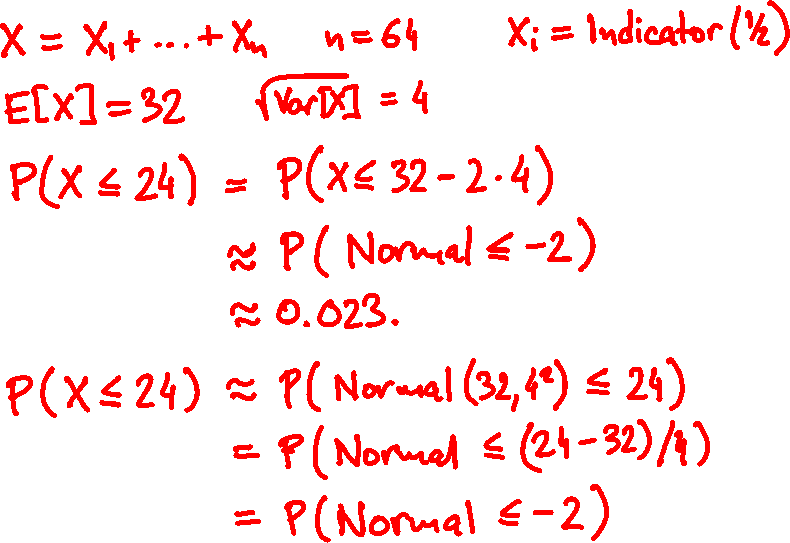 X = X₁ + ... + Xₙ n = 64 Xᵢ = Indicator (½)
E[X] = 32 √Var[X] = 4
P(X ≤ 24) = P(X ≤ 32 - 2·4)
≈ P( Normal ≤ -2)
≈ 0.023.
P(X ≤ 24) ≈ P( Normal (32, 4²) ≤ 24)
= P( Normal ≤ (24 - 32)/4)
= P(Normal ≤ -2)